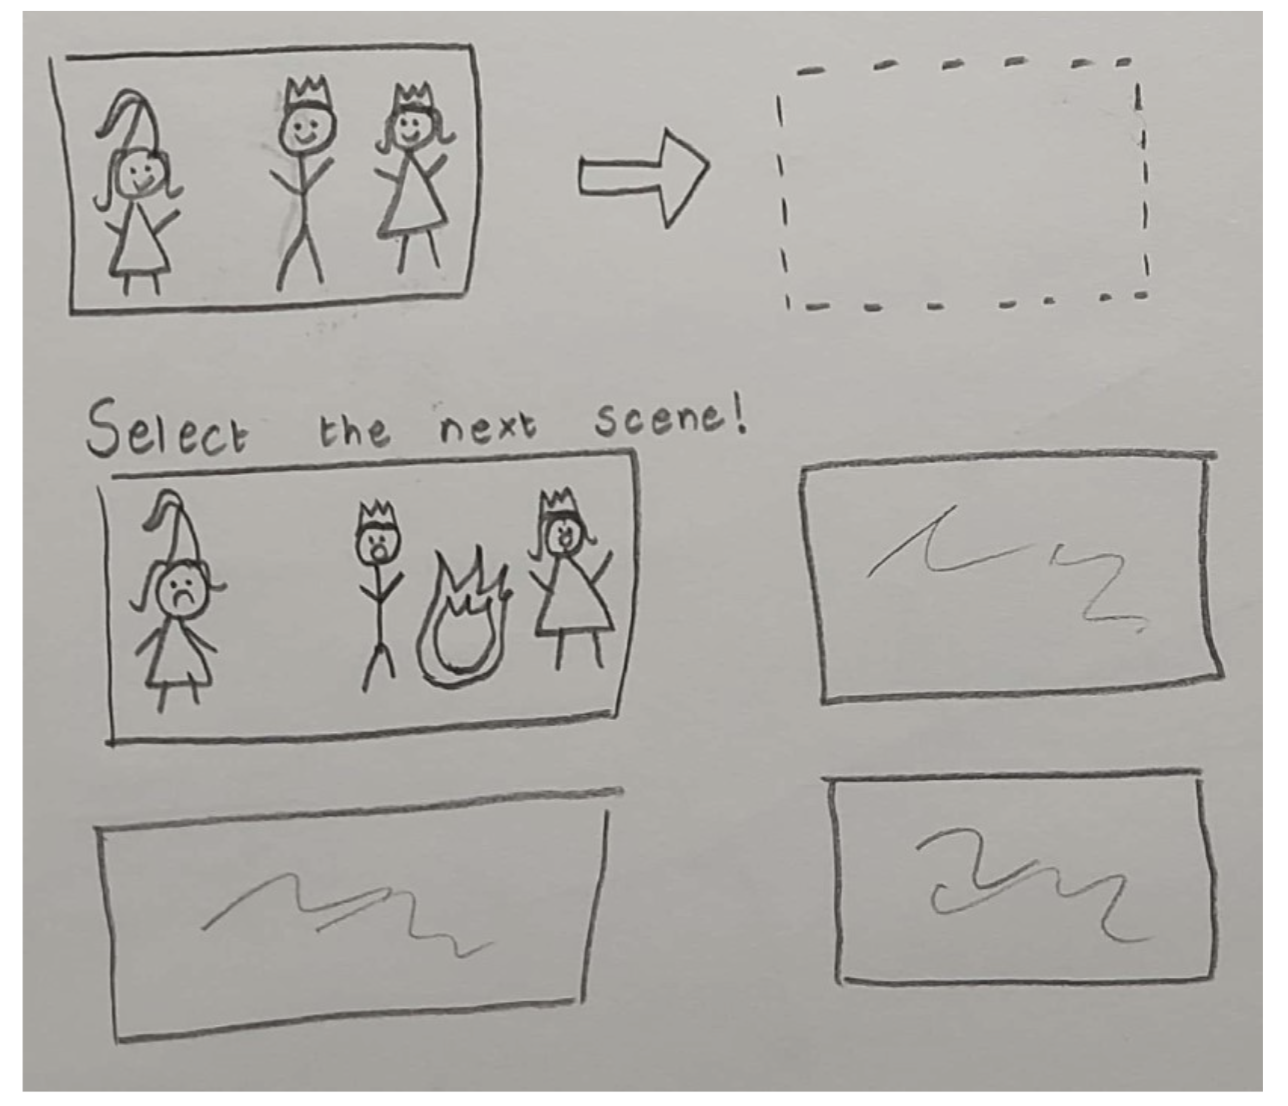 Select the next scene!